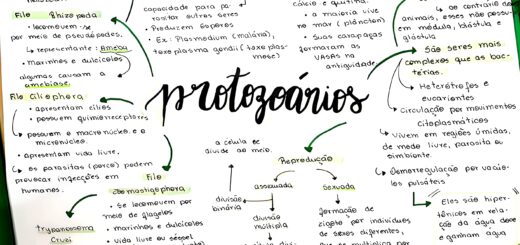 Filo Rhizopoda
↳ locomovem-se
por meio de pseudópodes.
↳ representante: Ameba
• marinhos e dulcícolas
algumas causam a
amebíase.
Filo Ciliophora
• apresentam cílios
• possuem quimiorreceptores
↳ possuem o macronúcleo e o
micronúcleo.
• apresentam vida livre.
↳ os parasitas (porco) podem
provocar infecções em
humanos.
Filo
zoomastigophora
• Se locomovem por
meio de flagelos
• marinhos e dulcícolas
• vida livre ou séssel
trypanosoma
Cruzi
capacidade para pa-
rasitar outros seres
• Produzem esporos
• Ex: Plasmodium (malária),
toxoplasma gondii (toxoplas-
mose)
• a maioria vive
no mar (plâncton)
• Suas carapaças
formaram as
VASAS na
antiguidade
ao contrário dos
animais, esses não possu-
em mórula, blástula e
gástrula
protozoários
São seres mais
complexos que as bac-
térias.
↳ Heterótrofos e
eucariontes
↳ Circulação por movimentos
citoplasmáticos
↳ Vivem em regiões úmidas,
de modo livre, parasita ou
simbionte.
↳ Osmorregulação por vacúo-
los pulsáteis
↳ Eles são hiper-
tônicos em rela-
ção da água doce
e ganham água
Reprodução
assexuada
Sexuada
a célula se
divide ao meio.
divisão
binária
divisão
múltipla
formação de
zigoto por indivíduos
de sexos diferentes,
que se multiplica por